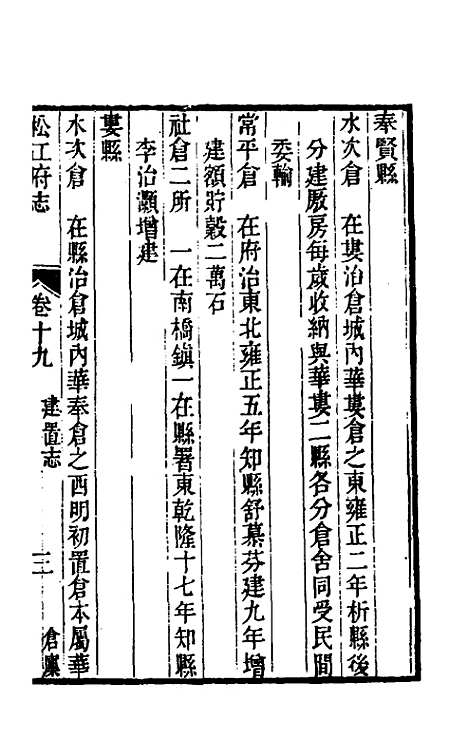 奉賢縣
水次倉　在婁治倉城內華婁倉之東雍正二年析縣後
分建廒房每歲收納與華婁二縣各分倉舍同受民間
委輸
常平倉　在府治東北雍正五年知縣舒慕芬建九年增
建額貯穀二萬石
社倉二所　一在南橋鎮一在縣署東乾隆十七年知縣
李治灝增建
婁縣
水次倉　在縣治倉城內華奉倉之西明初置倉本屬華
松江府志　卷十九　建置志　倉廩